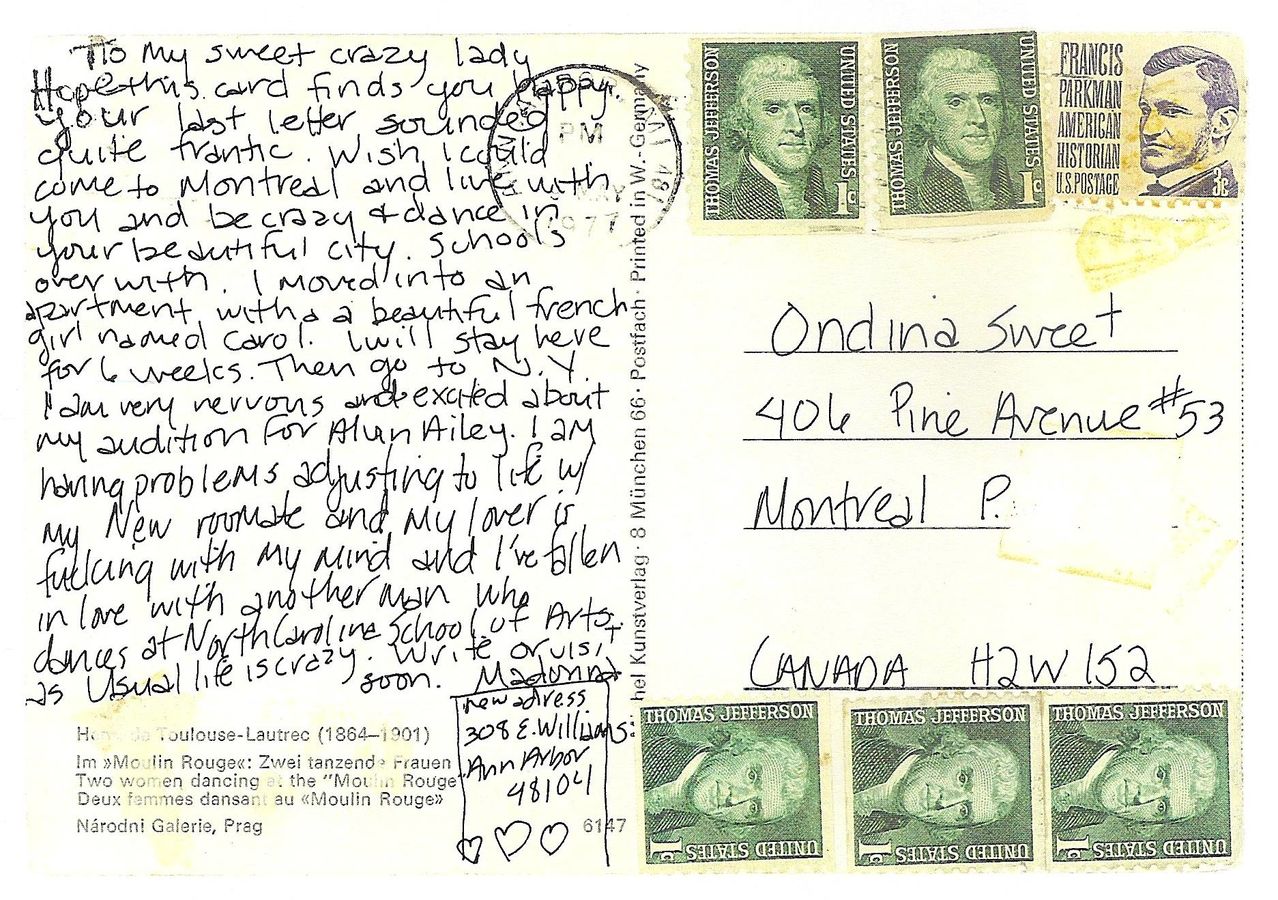 To My sweet crazy lady
Hope this card finds you happy.
your last letter sounded
quite frantic. Wish I could
come to Montreal and live with
you and be crazy & dance in
your beautiful city. Schools
over with. I moved into an
apartment with a a beautiful french
girl named Carol. I will stay here
for 6 weeks. Then go to N.Y.
I am very nervous and excited about
my audition for Alvin Ailey. I am
having problems adjusting to life w/
my New roomate and my lover is
fucking with my mind and I've fallen
in love with another man who
dances at North Carolina School of Arts.
as Usual life is crazy. Write or visit
soon. Madonna
new adress
308 E. Williams
Ann Arbor
48104
Toulouse-Lautrec (1864–1901)
Im »Moulin Rouge«: Zwei tanzende Frauen
Two women dancing at the "Moulin Rouge"
Deux femmes dansant au «Moulin Rouge»
Národni Galerie, Prag
6147
hel Kunstverlag · 8 München 66 · Postfach · Printed in W.-Germany
PM
MAY
1977
MI 481
THOMAS JEFFERSON
UNITED STATES
1c
THOMAS JEFFERSON
UNITED STATES
1c
FRANCIS
PARKMAN
AMERICAN
HISTORIAN
U.S. POSTAGE
3c
Ondina Sweet
406 Pine Avenue #53
Montreal P.
CANADA H2W 1S2
THOMAS JEFFERSON
UNITED STATES
1c
THOMAS JEFFERSON
UNITED STATES
1c
THOMAS JEFFERSON
UNITED STATES
1c